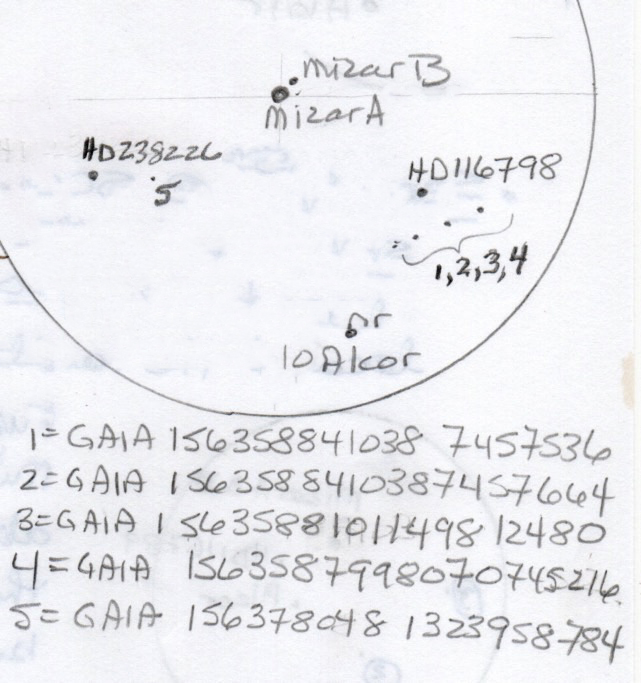 mizar B
mizar A
HD238226
5
HD116798
1,2,3,4
pr
10 Alcor
1= GAIA 156358841038 7457536
2= GAIA 1563588410387457664
3=GAIA 1563588101149812480
4=GAIA 1563587998070745216.
5= GAIA 156378048 1323958784